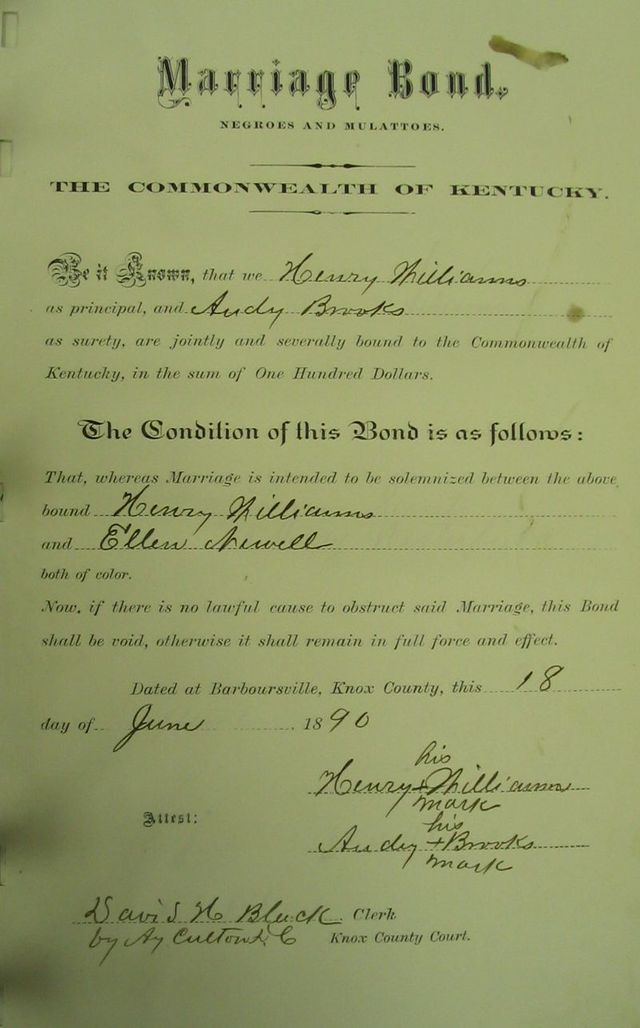 Marriage Bond.
NEGROES AND MULATTOES.
THE COMMONWEALTH OF KENTUCKY.
Be it Known, that we Henry Williams
as principal, and Andy Brooks
as surety, are jointly and severally bound to the Commonwealth of
Kentucky, in the sum of One Hundred Dollars.
The Condition of this Bond is as follows:
That, whereas Marriage is intended to be solemnized between the above
bound Henry Williams
and Ellen Newell
both of color.
Now, if there is no lawful cause to obstruct said Marriage, this Bond
shall be void, otherwise it shall remain in full force and effect.
Dated at Barboursville, Knox County, this 18
day of June 1890
his
Henry + Williams
mark
his
Attest:
Andy + Brooks
mark
David H Black Clerk
by Culton Knox County Court.